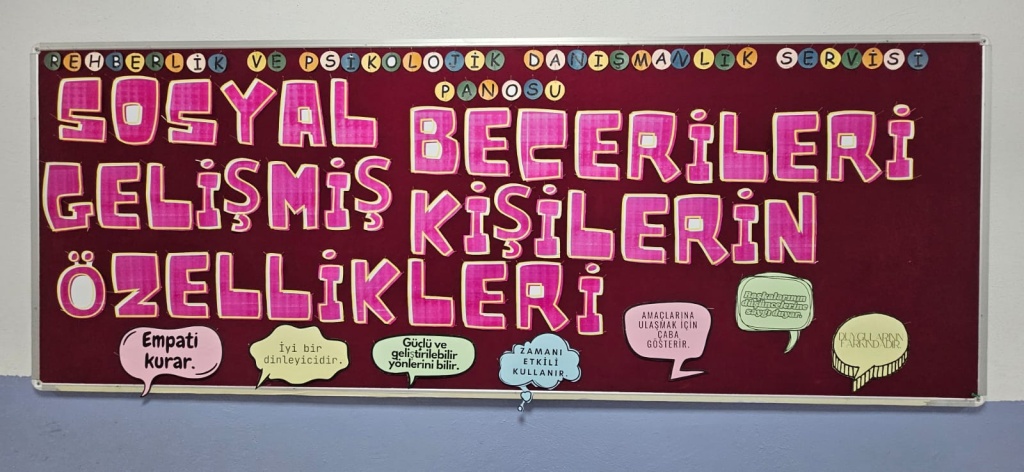 REHBERLİK VE PSİKOLOJİK DANIŞMANLIK SERVİSİ
PANOSU
SOSYAL BECERİLERİ
GELİŞMİŞ KİŞİLERİN
ÖZELLİKLERİ
Empati
kurar.
İyi bir
dinleyicidir.
Güçlü ve
geliştirilebilir
yönlerini bilir.
ZAMANI
ETKİLİ
KULLANIR.
AMAÇLARINA
ULAŞMAK İÇİN
ÇABA
GÖSTERİR.
Başkalarının
düşüncelerine
saygı duyar.
DUYGULARININ
FARKINDADIR.